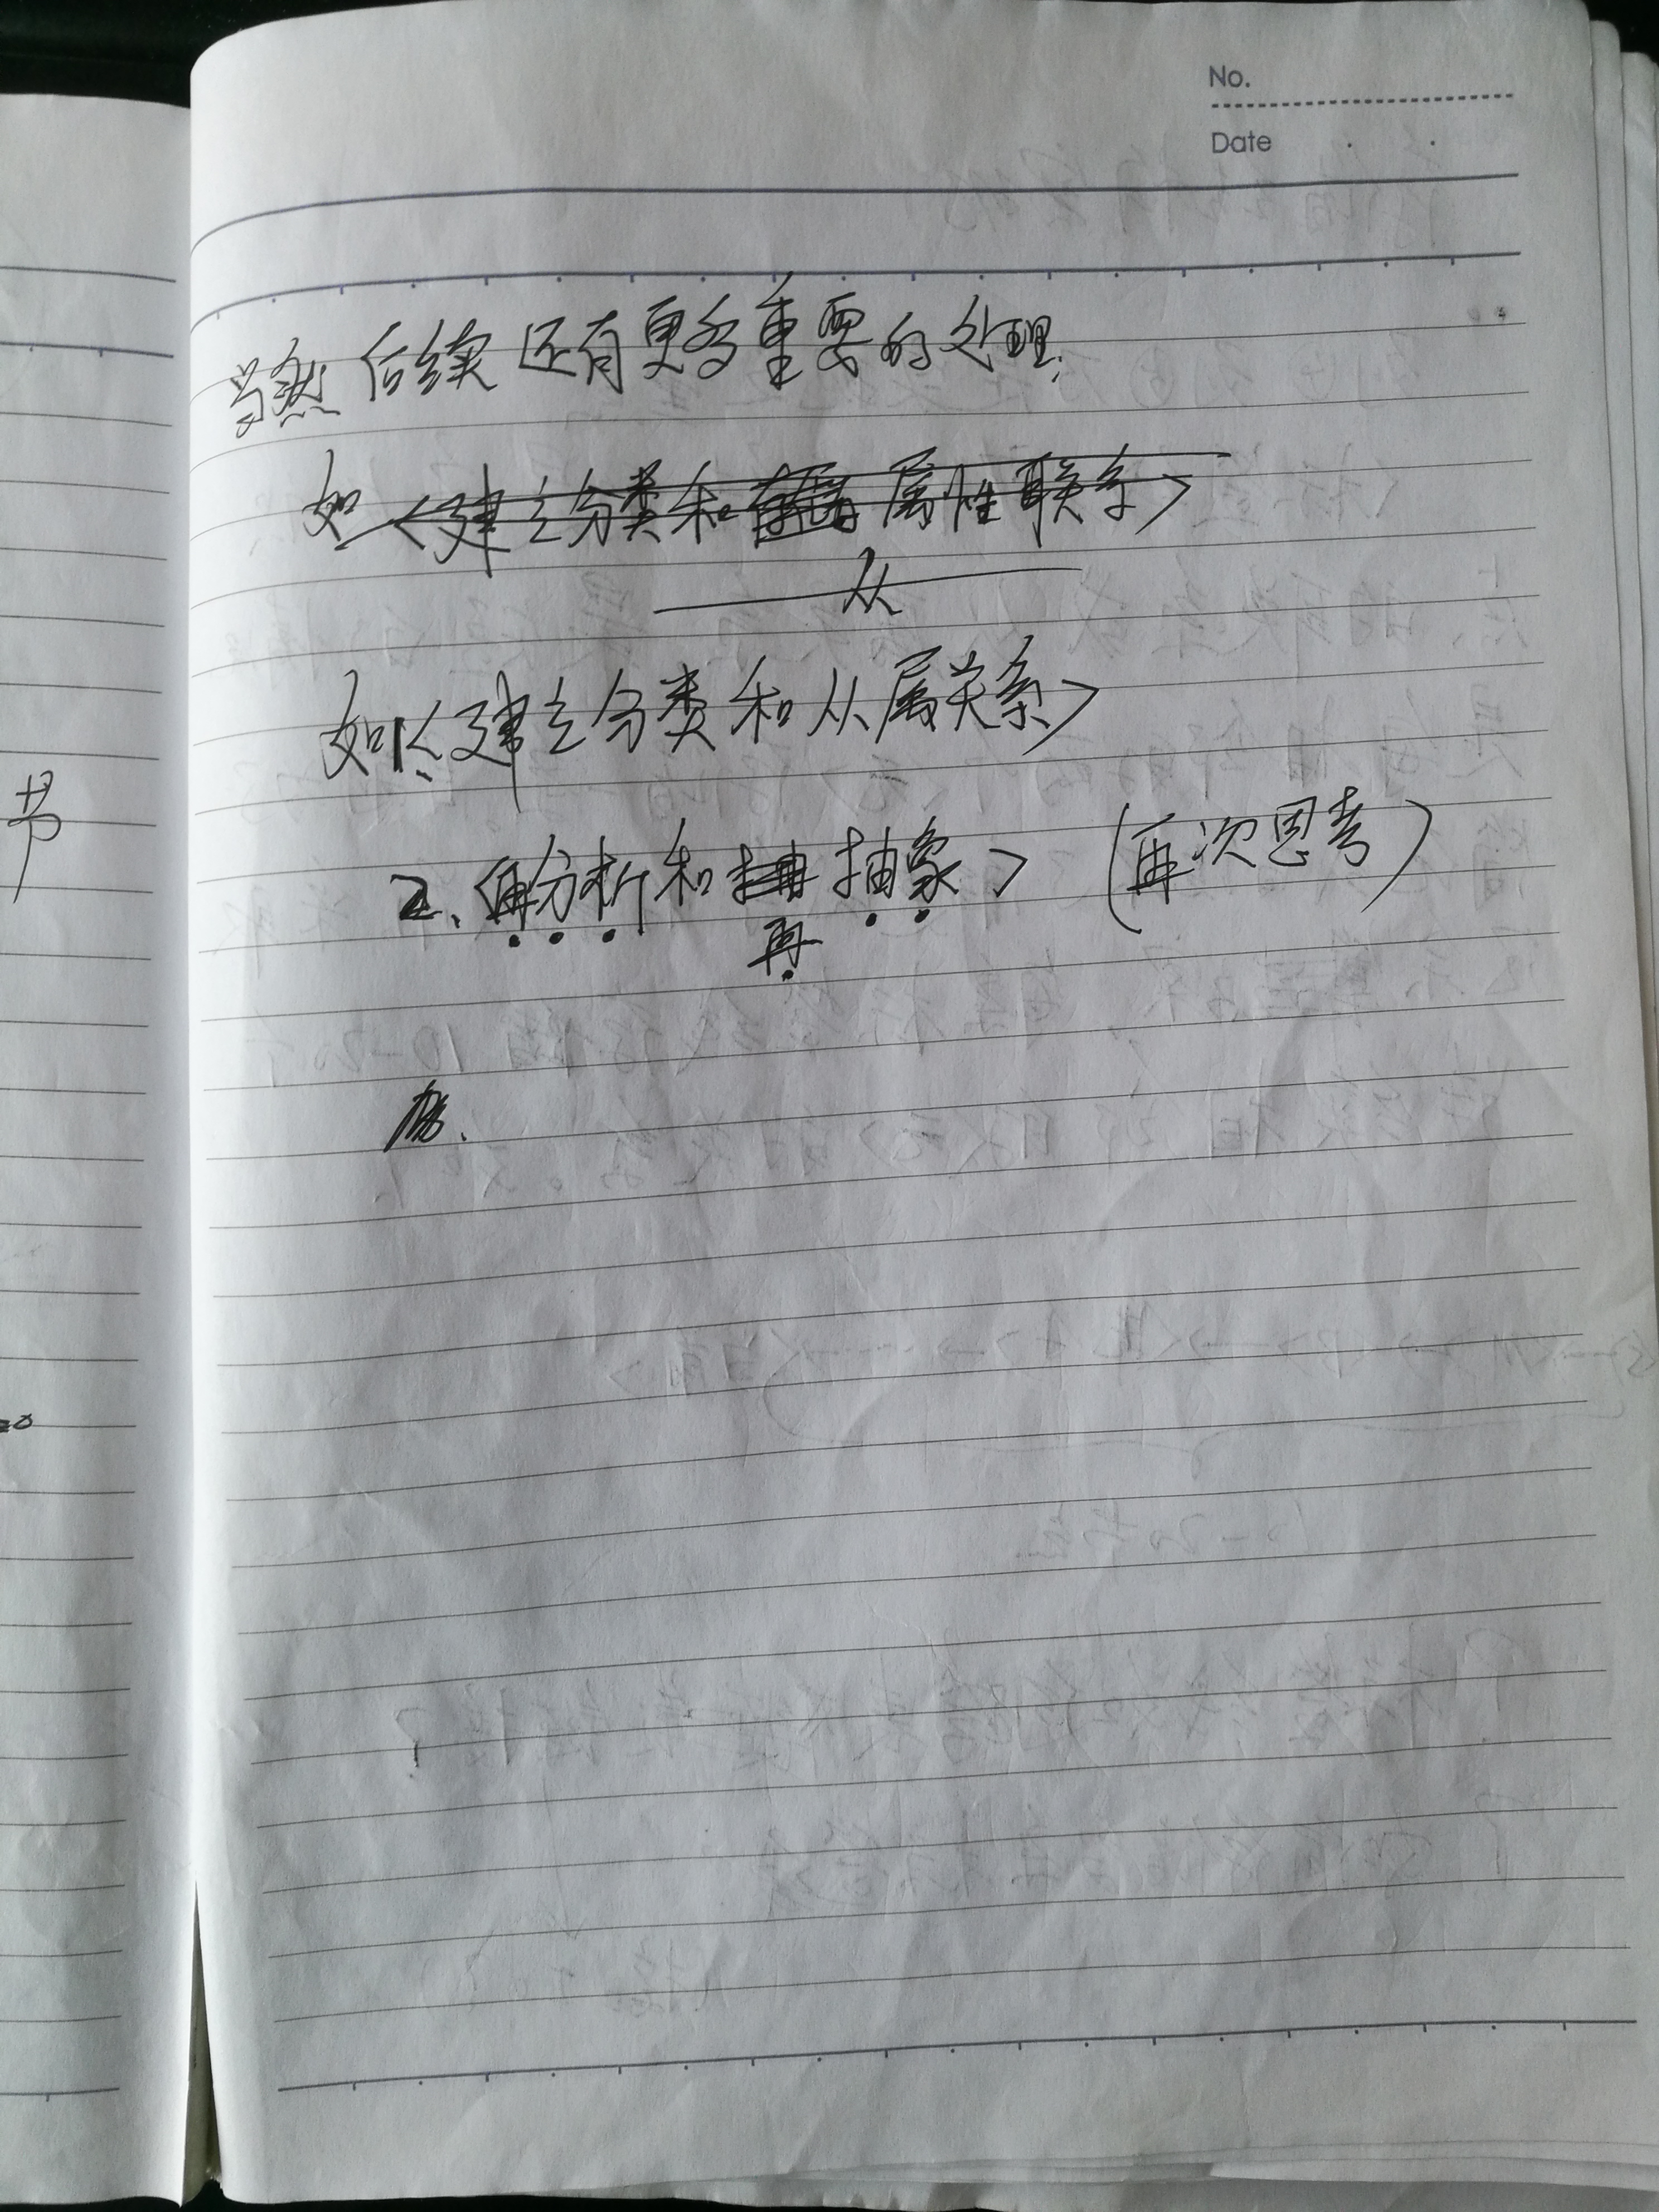 No.
Date
当然后续还有更多重要的处理:
如<建立分类和属性联系>
从
如1.<建立分类和从属关系>
2.<再分析和抽象> (再次思考)
再
节